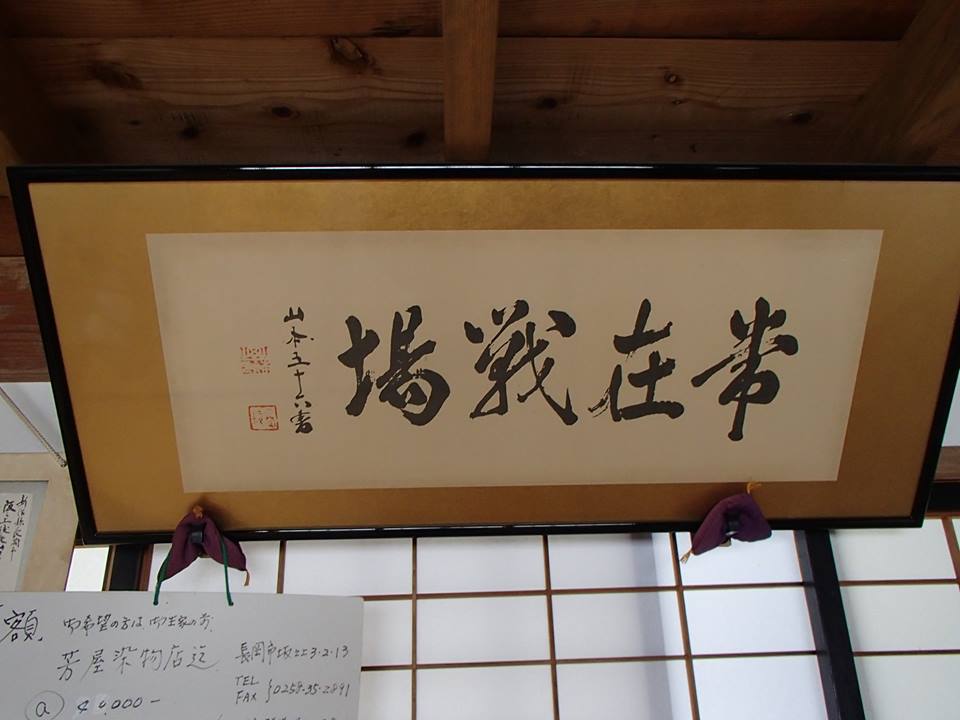 常在戦場
山本五十六書
額
御希望の方は
芳屋染物店迄
長岡市坂之上3-2-13
TEL
FAX }0258-35-2891
ⓐ ¥4,000-